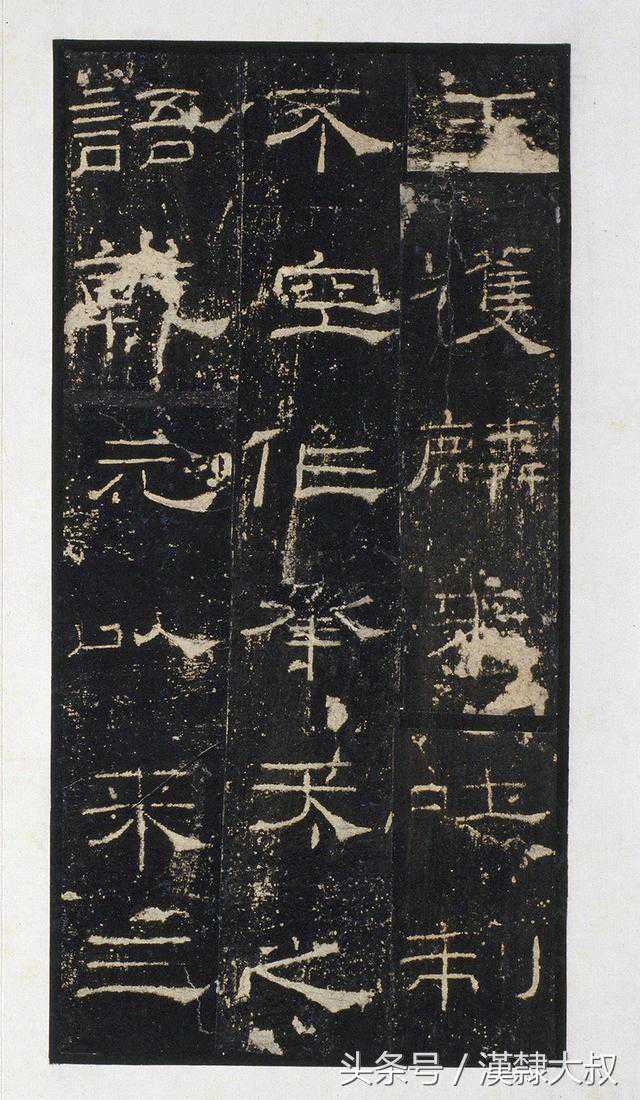 王獲麟來吐制
不空作承天之
語乾元以來三
头条号 / 漢隸大叔